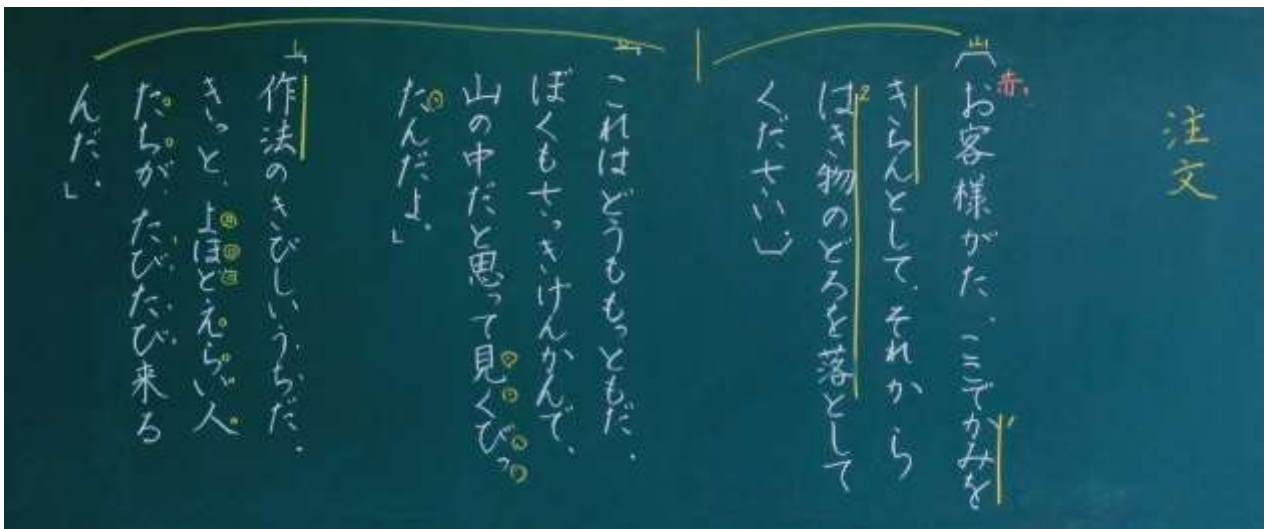 注文
赤
お客様がた、ここでかみを
きちんとして、それから
はき物のどろを落として
ください。
これはどうももっともだ。
ぼくもさっきげんかんで、
山の中だと思って見くびっ
たんだよ。」
作法のきびしいうちだ。
きっと、よほどえらい人
たちが、たびたび来る
んだ。」